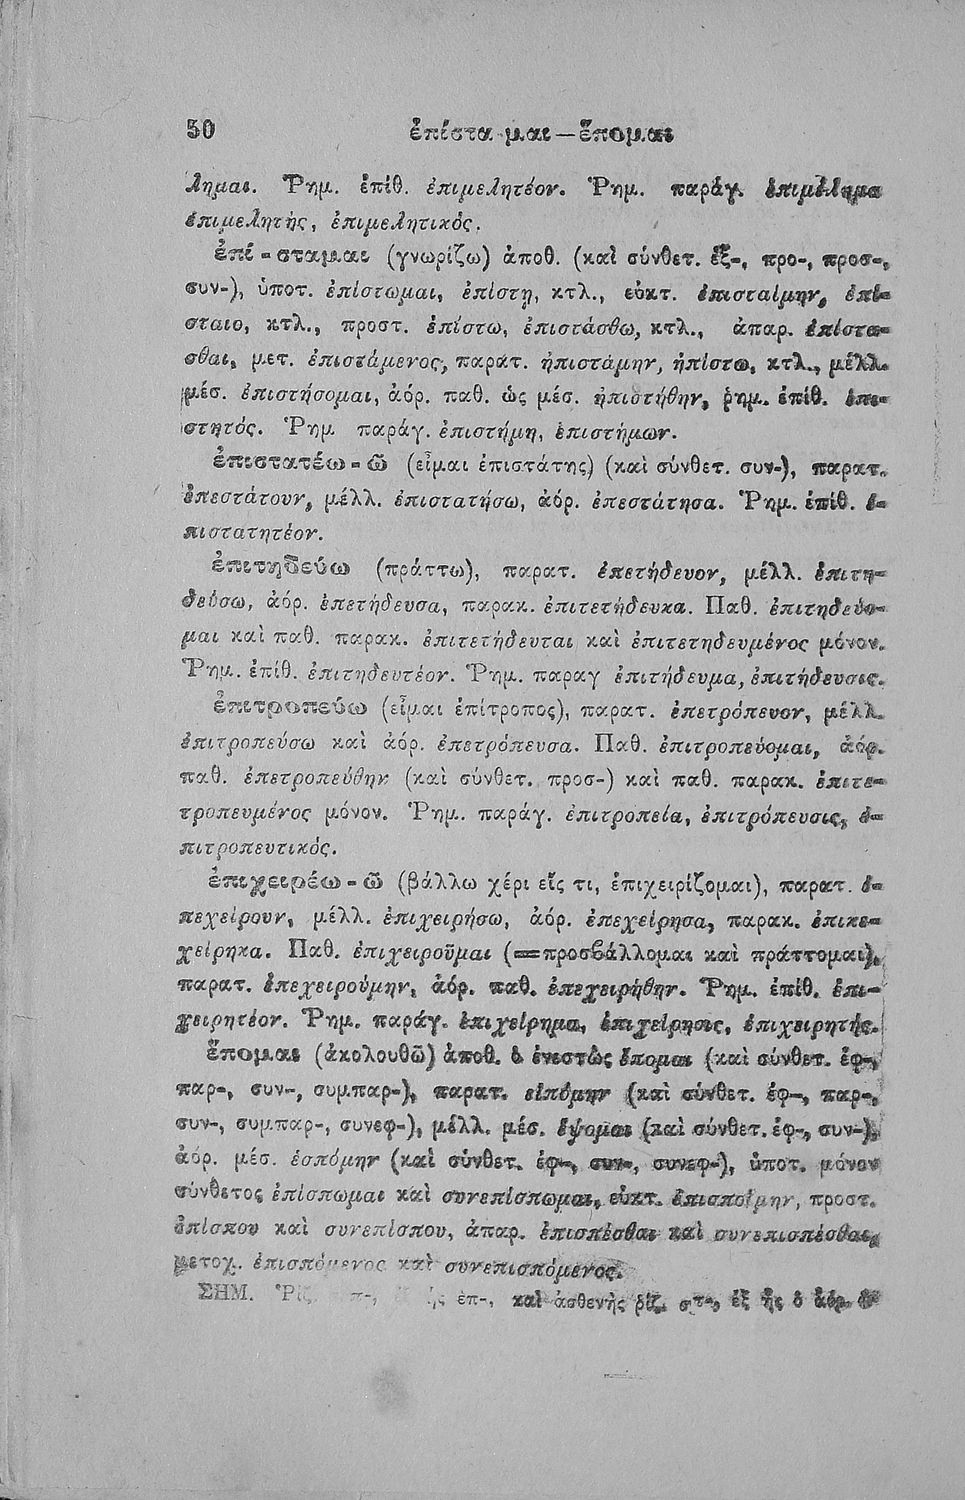 50 ἐπίστα-μαι—ἕπομαι
λημαι. Ῥημ. ἐπίθ. ἐπιμελητέον. Ῥημ. παράγ. ἐπιμέλημα
ἐπιμελητὴς, ἐπιμελητικός.
ἐπί-σταμαι (γνωρίζω) ἀποθ. (καὶ σύνθετ. ἐξ-, προ-, προσ-,
συν-), ὑποτ. ἐπίστωμαι, ἐπίστῃ, κτλ., εὐκτ. ἐπισταίμην, ἐπί-
σταιο, κτλ., προστ. ἐπίστω, ἐπιστάσθω, κτλ., ἀπαρ. ἐπίστα-
σθαι, μετ. ἐπιστάμενος, παρατ. ἠπιστάμην, ἠπίστω, κτλ., μέλλ.
μέσ. ἐπιστήσομαι, ἀόρ. παθ. ὡς μέσ. ἠπιστήθην, ῥημ. ἐπίθ. ἐπι-
στητός. Ῥημ παράγ. ἐπιστήμη, ἐπιστήμων.
ἐπιστατέω-ῶ (εἶμαι ἐπιστάτης) (καὶ σύνθετ. συν-), παρατ.
ἐπεστάτουν, μέλλ. ἐπιστατήσω, ἀόρ. ἐπεστάτησα. Ῥημ. ἐπίθ. ἐ-
πιστατητέον.
ἐπιτηδεύω (πράττω), παρατ. ἐπετήδευον, μέλλ. ἐπιτη-
δεύσω, ἀόρ. ἐπετήδευσα, παρακ. ἐπιτετήδευκα. Παθ. ἐπιτηδεύο-
μαι καὶ παθ. παρακ. ἐπιτετήδευται καὶ ἐπιτετηδευμένος μόνον.
Ῥημ. ἐπίθ. ἐπιτηδευτέον. Ῥημ. παραγ ἐπιτήδευμα, ἐπιτήδευσις.
ἐπιτροπεύω (εἶμαι ἐπίτροπος), παρατ. ἐπετρόπευον, μέλλ.
ἐπιτροπεύσω καὶ ἀόρ. ἐπετρόπευσα. Παθ. ἐπιτροπεύομαι, ἀόρ.
παθ. ἐπετροπεύθην (καὶ σύνθετ. προσ-) καὶ παθ. παρακ. ἐπιτε-
τροπευμένος μόνον. Ῥημ. παράγ. ἐπιτροπεία, ἐπιτρόπευσις, ἐ-
πιτροπευτικός.
ἐπιχειρέω-ῶ (βάλλω χέρι εἴς τι, ἐπιχειρίζομαι), παρατ. ἐ-
πεχείρουν, μέλλ. ἐπιχειρήσω, ἀόρ. ἐπεχείρησα, παρακ. ἐπικε-
χείρηκα. Παθ. ἐπιχειροῦμαι (=προσβάλλομαι καὶ πράττομαι),
παρατ. ἐπεχειρούμην, ἀόρ. παθ. ἐπεχειρήθην. Ῥημ. ἐπίθ. ἐπι-
χειρητέον. Ῥημ. παράγ. ἐπιχείρημα, ἐπιχείρησις, ἐπιχειρητής.
ἕπομαι (ἀκολουθῶ) ἀποθ. ὁ ἐνεστὼς ἕπομαι (καὶ σύνθετ. ἐφ-,
παρ-, συν-, συμπαρ-), παρατ. εἱπόμην (καὶ σύνθετ. ἐφ-, παρ-,
συν-, συμπαρ-, συνεφ-), μέλλ. μέσ. ἕψομαι (καὶ σύνθετ. ἐφ-, συν-),
ἀόρ. μέσ. ἑσπόμην (καὶ σύνθετ. ἐφ-, συν-, συνεφ-), ὑποτ. μόνον
σύνθετος ἐπίσπωμαι καὶ συνεπίσπωμαι, εὐκτ. ἐπισποίμην, προστ.
ἐπίσπου καὶ συνεπίσπου, ἀπαρ. ἐπισπέσθαι καὶ συνεπισπέσθαι,
μετοχ. ἐπισπόμενος καὶ συνεπισπόμενος.
ΣΗΜ. ἑπ-, καὶ ἀσθενὴς ῥίζ. σπ-, ἐξ ἧς ὁ ἀόρ.